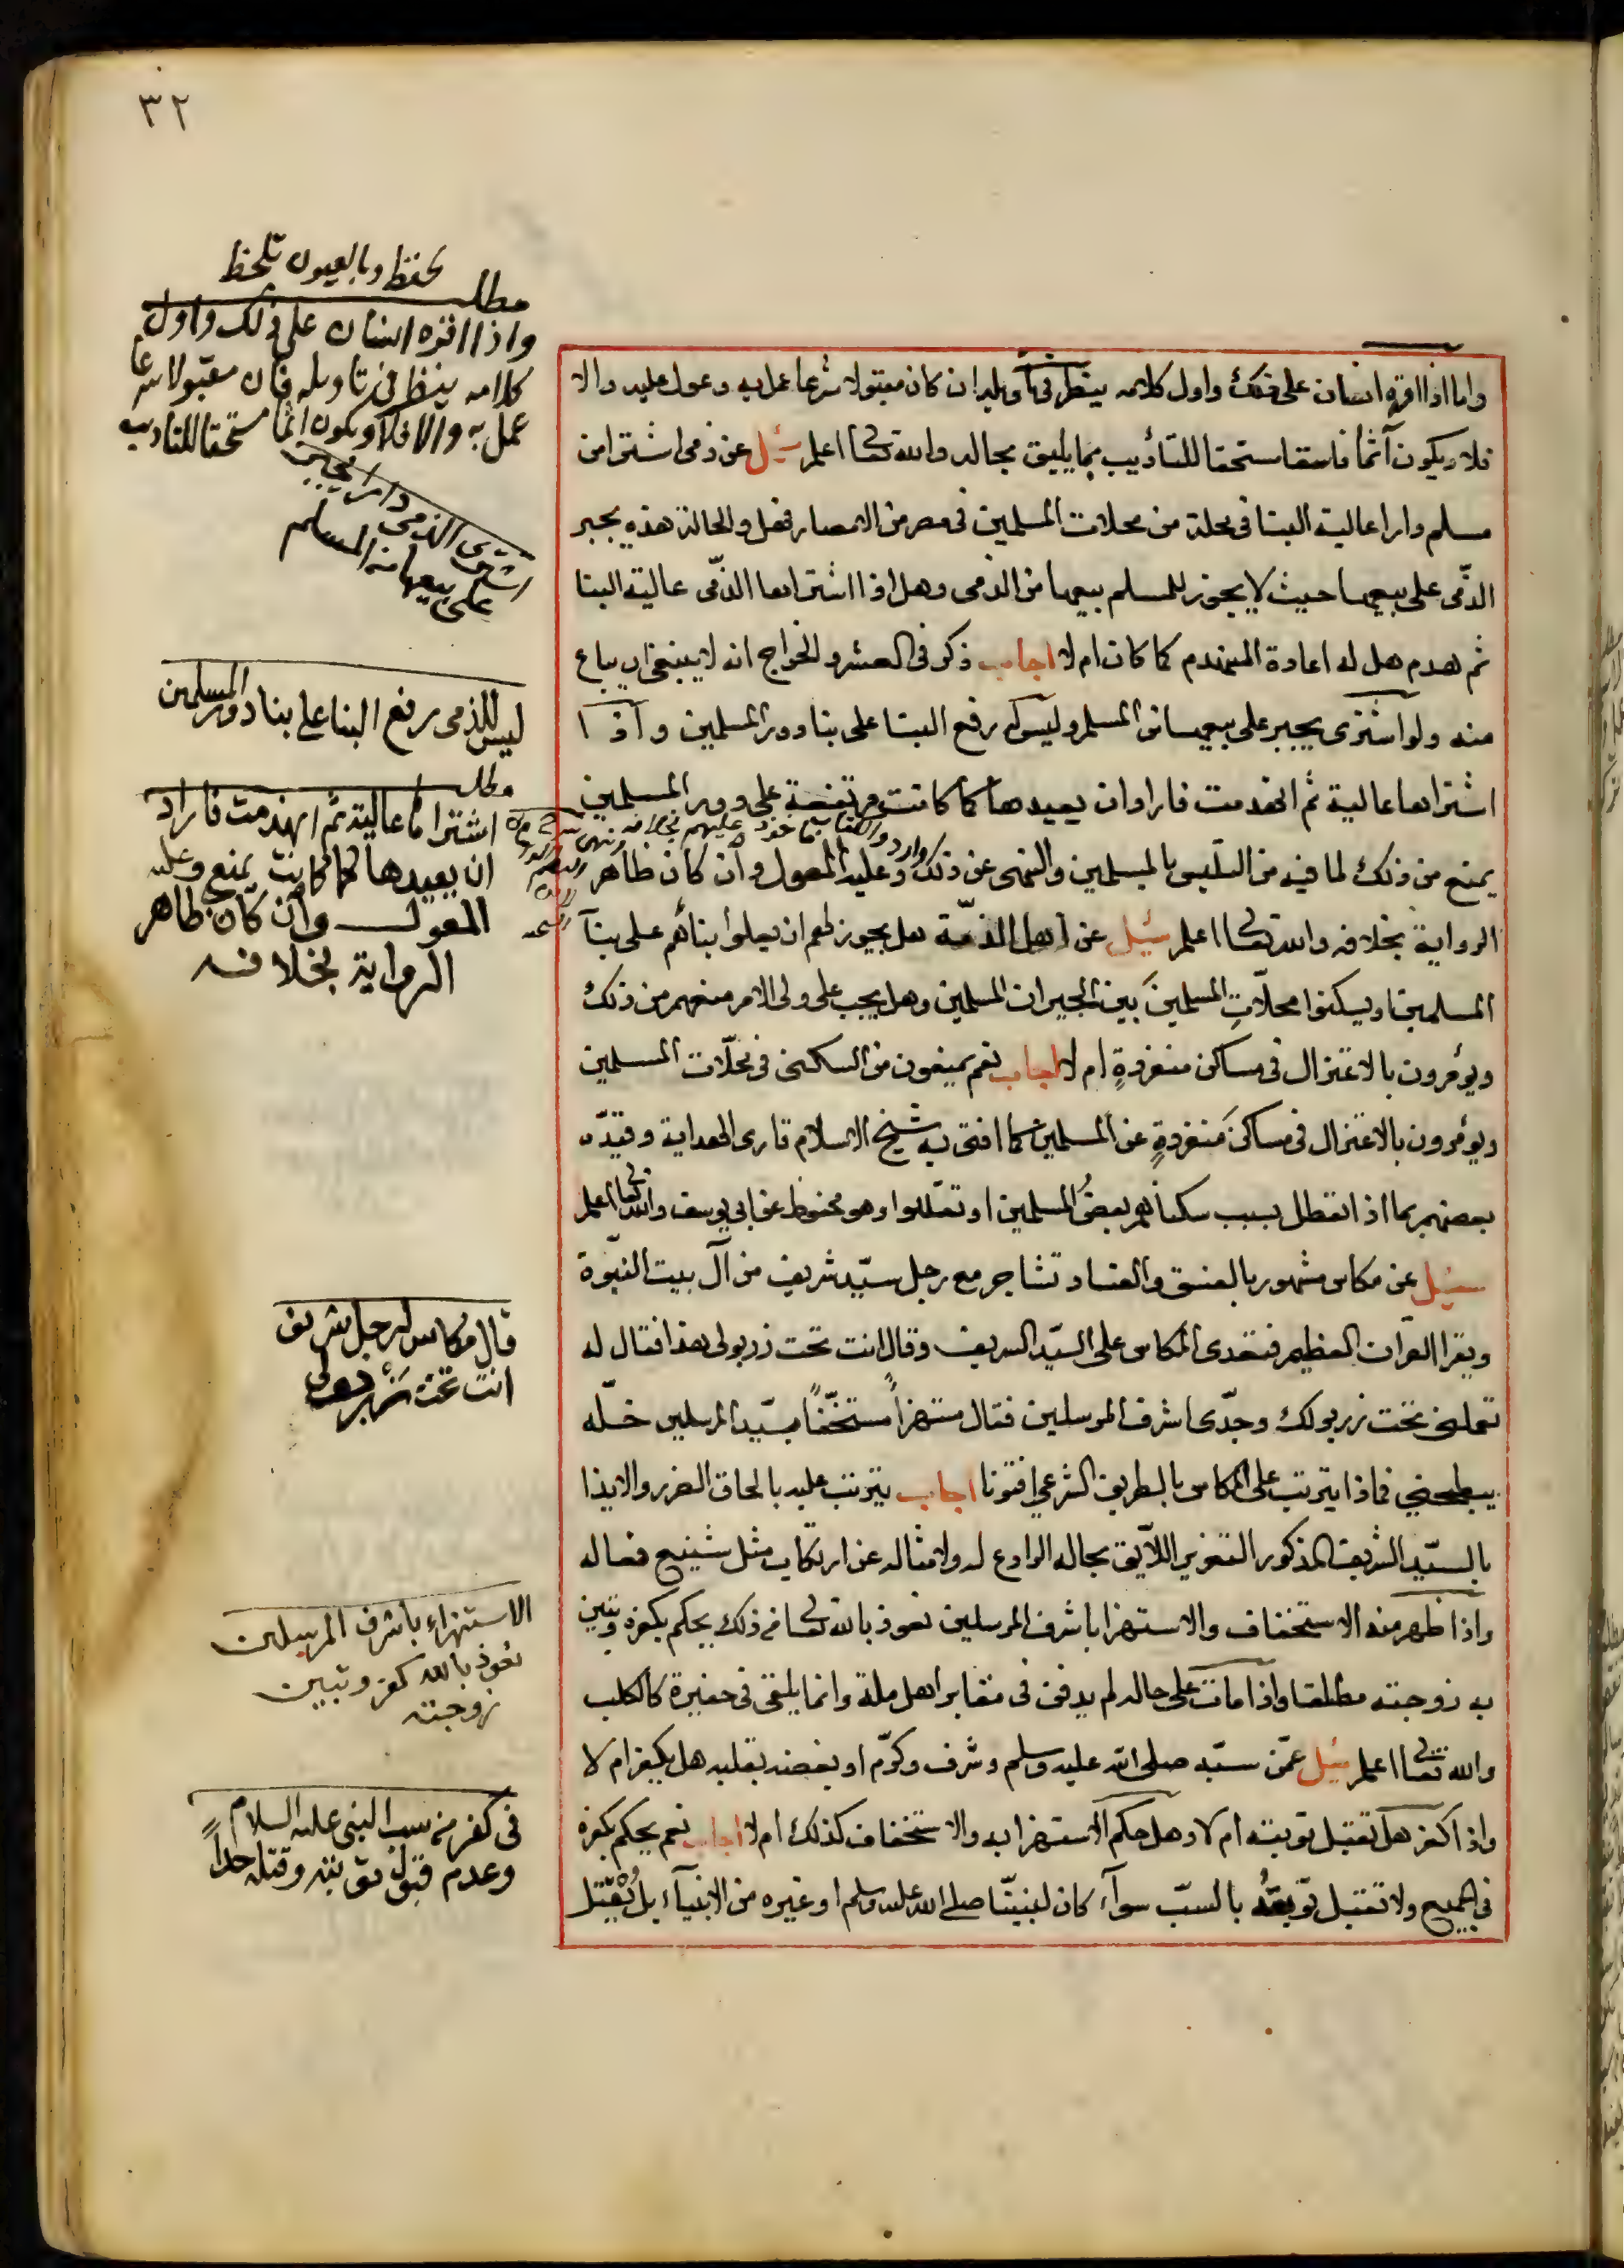 ٣٢
واما اذا اقره انسان على ذلك واول كلامه ينظر في تأويله ان كان مقبولا شرعا عمل به وعول عليه والا
فلا ويكون آثما فاسقا مستحقا للتأديب بما يليق بحاله والله تعالى اعلم سئل عن ذمى اشترا من
مسلم دارا عالية البنا فى محلة من محلات المسلمين فى مصر من الامصار فهل والحالة هذه يجبر
الذمّى على بيعها حيث لا يجوز للمسلم بيعها من الذمى وهل اذا اشتراها الذمّى عالية البنا
ثم هدم هل له اعادة المنهدم كما كان ام لا اجاب ذكر فى العشر والخراج انه لا ينبغى ان يباع
منه ولو اشترى يجبر على بيعها من المسلم وليس له رفع البنا على بنا دور المسلمين واذا
اشتراها عالية ثم انهدمت فاراد ان يعيدها كما كانت مرتفعة على دور المسلمين
يمنع من ذلك لما فيه من التلبس بالمسلمين والنهى عن ذلك وارد وعليه المعول وان كان ظاهر
الرواية بخلافه والله تعالى اعلم سئيل عن اهل الذمّة هل يجوز لهم ان يعلوا بنائهم على بنآ
المسلمين او يسكنوا محلّاتِ المسلمين بَين الجيران المسلمين وهل يجب على ولى الامر منعهم من ذلك
ويؤمرون بالاعتزال فى مساكن منفردةٍ ام لا اجاب نعم يمنعون من السكنى فى محلّات المسلمين
ويؤمرون بالاعتزال فى مساكن مَنفردةٍ عن المسلمين كما افتى به شيخ الاسلام قارى الهداية وقيّده
بعضهم بما اذا تعطل بسبب سكناهم بعضُ المسلمين او تقللوا وهو محفوظ عن ابى يوسف والله تعالى اعلم
سئيل عن مكاس مشهور بالفسق والفساد تشاجر مع رجل سيّد شريف من آل بيت النبوّة
ويقرا القرآن العظيم فتعدى المكاس على السيّد الشريف وقال انت تحت زربولى هذا فقال له
تجعلنى تحت زربولك وجدّى اشرف المرسلين فقال مستهزاً مستخفّاً بسيّد المرسلين خلّه
يبطحنى فماذا يترتب على المكاس بالطريق الشرعي افتونا اجاب يترتب عليه بالحاق الضرر والايذا
بالسيّد الشريف المذكور التعزير اللآيق بحاله الرادع له ولامثاله عن ارتكاب مثل شنيع فعاله
واذا ظهر منه الاستخفاف والاستهزا باشرف المرسلين نعوذ بالله تعالى من ذلك يحكم بكفره وتبين
به زوجته مطلقا واذا مات على حاله لم يدفن فى مقابر اهل ملة وانما يلقى فى حفيرة كالكلب
والله تعالى اعلم سئيل عمّن سبّه صلى الله عليه وسلم وشرف وكرّم او بغضه بقلبه هل يكفر ام لا
واذا كفر هل تقبل توبته ام لا وهل حكم الاستهزا به والاستخفاف كذلك ام لا اجاب نعم يحكم بكفره
فى الجميع ولا تقبل توبتهُ بالسبّ سوآء كان لنبيّنا صلى الله عليه وسلم او غيره من الانبيآء بل يُقْتل
تحفظ وبالعيون تلحظ
مطلب
واذا اقره انسان على ذلك واول
كلامه ينظر فى تاويله فان مقبولا شرعا
عمل به والا فلا ويكون اثما مستحقا للتاديب
اشترى الذمى دارا يجبر
على بيعها من المسلم
ليس للذمى رفع البنا على بنا دور المسلمين
مطلب
اشتراها عالية ثم انهدمت فاراد
ان يعيدها كما كانت يمنع وعليه
المعول وان كان ظاهر
الرواية بخلافه
قال مكاس لرجل شريف
انت تحت زربولى
الاستهزاء باشرف المرسلين
نعوذ بالله كفر وتبين
زوجته
فى كفر من سب النبى عليه السلام
وعدم قبول توبته وقتله حداً